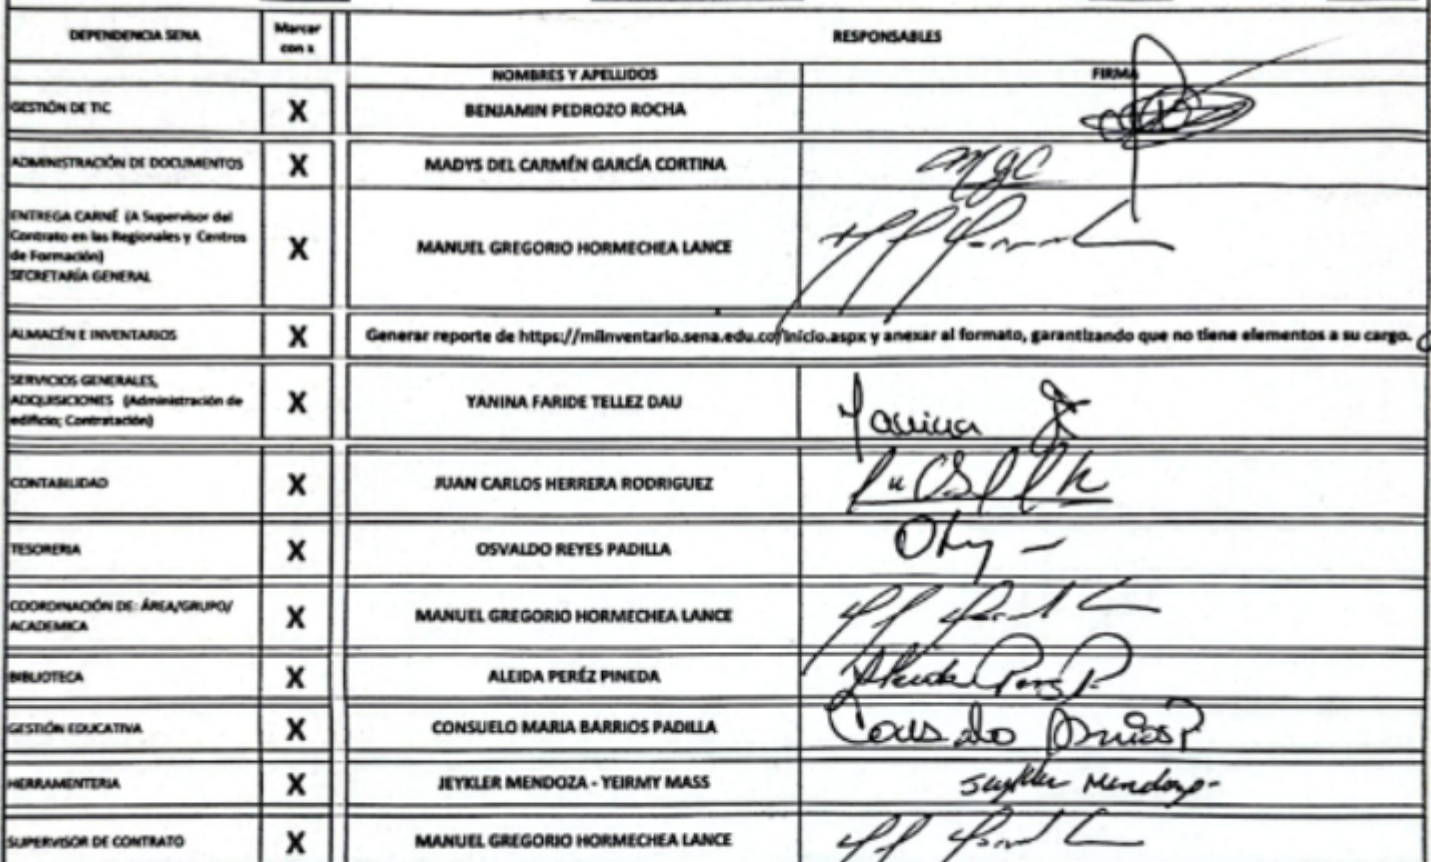 DEPENDENCIA SENA
Marcar
con x
RESPONSABLES
NOMBRES Y APELLIDOS
FIRMA
GESTIÓN DE TIC
X
BENJAMIN PEDROZO ROCHA
ADMINISTRACIÓN DE DOCUMENTOS
X
MADYS DEL CARMÉN GARCÍA CORTINA
MGC
ENTREGA CARNÉ (A Supervisor del
Contrato en las Regionales y Centros
de Formación)
SECRETARÍA GENERAL
X
MANUEL GREGORIO HORMECHEA LANCE
ALMACÉN E INVENTARIOS
X
Generar reporte de https://miinventario.sena.edu.co/inicio.aspx y anexar al formato, garantizando que no tiene elementos a su cargo.
SERVICIOS GENERALES,
ADQUISICIONES (Administración de
edificio; Contratación)
X
YANINA FARIDE TELLEZ DAU
Yanina
CONTABILIDAD
X
JUAN CARLOS HERRERA RODRIGUEZ
TESORERIA
X
OSVALDO REYES PADILLA
COORDINACIÓN DE: ÁREA/GRUPO/
ACADEMICA
X
MANUEL GREGORIO HORMECHEA LANCE
BIBLIOTECA
X
ALEIDA PERÉZ PINEDA
Aleida Perez P.
GESTIÓN EDUCATIVA
X
CONSUELO MARIA BARRIOS PADILLA
Consuelo Barrios P
HERRAMENTERIA
X
JEYKLER MENDOZA - YEIRMY MASS
Jeykler Mendoza
SUPERVISOR DE CONTRATO
X
MANUEL GREGORIO HORMECHEA LANCE